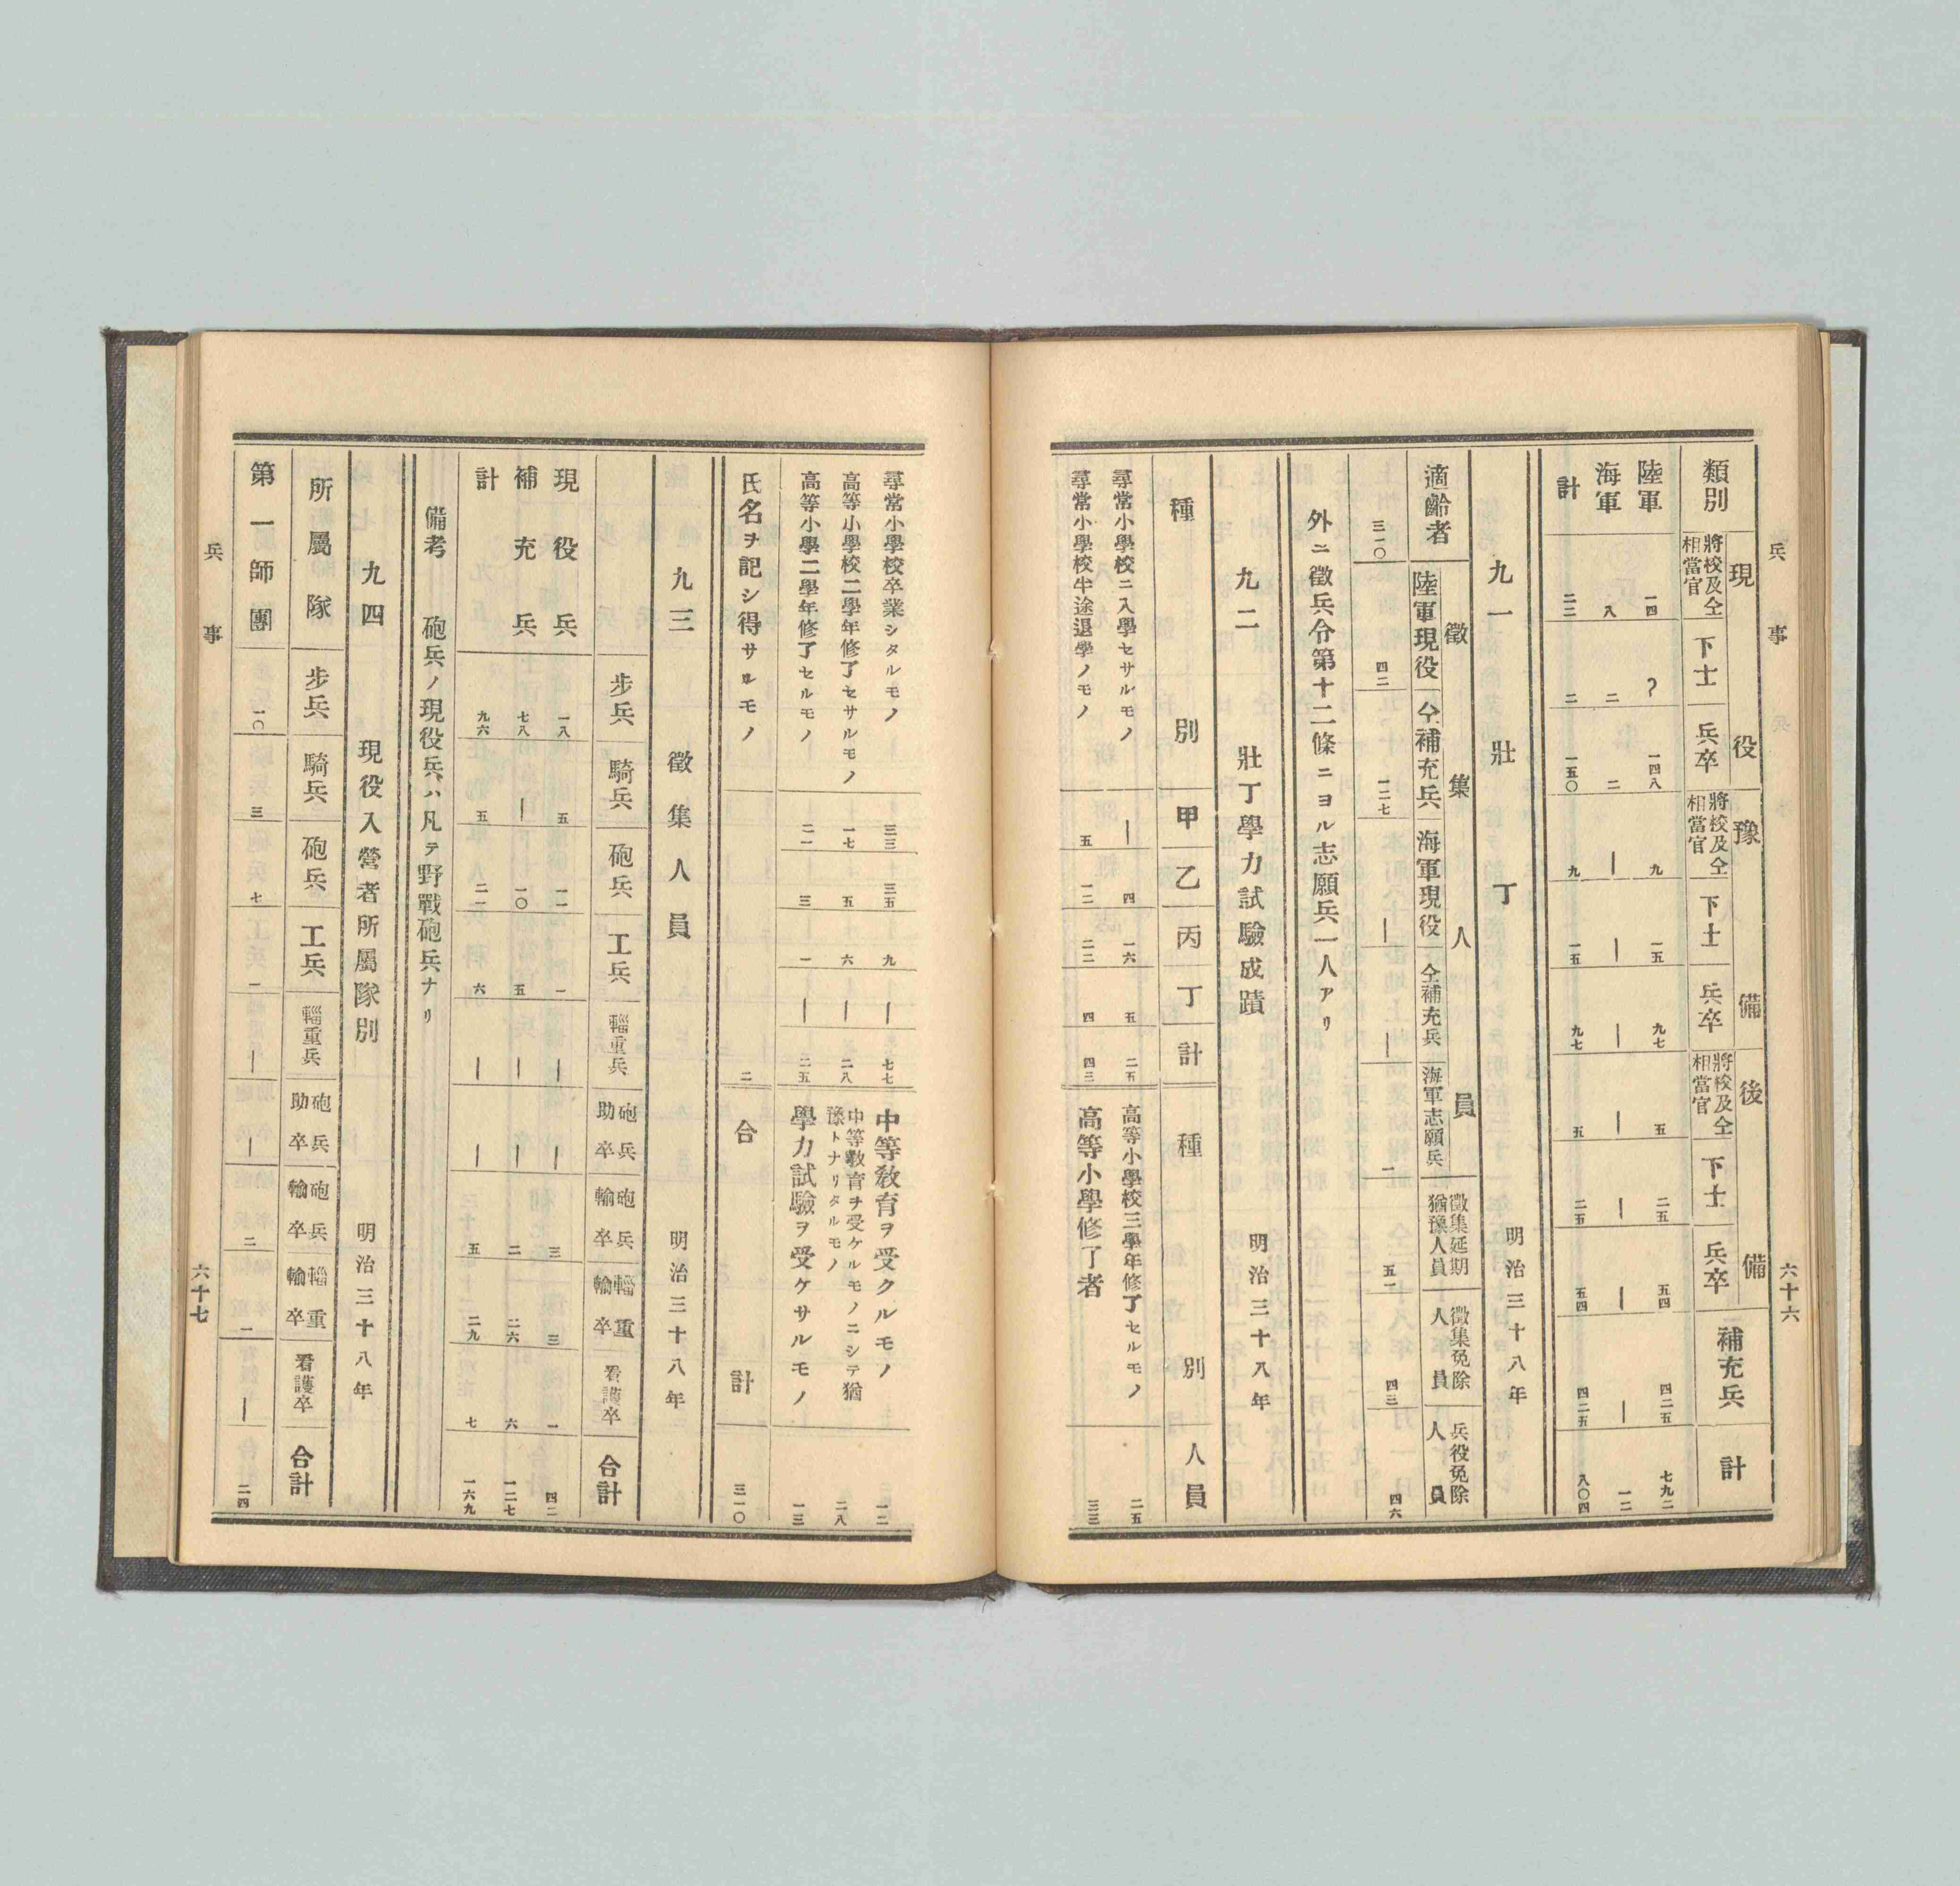 兵事
六十六
類別
現役
豫備
後備
將校及仝相當官
下士
兵卒
將校及仝相當官
下士
兵卒
將校及仝相當官
下士
兵卒
補充兵
計
陸軍 一四 ? 一四八 九 一五 九七 五 二五 五四 四二五 七九二
海軍 八 二 二 ー ー ー ー ー ー ー 一二
計 二二 二 一五〇 九 一五 九七 五 二五 五四 四二五 八〇四
九一 壯丁 明治三十八年
適齡者
徵集人員
陸軍現役
仝補充兵
海軍現役
仝補充兵
海軍志願兵
徵集延期猶豫人員
徵集免除人員
兵役免除人員
三一〇 四二 一二七 ー ー 一 五一 四三 四六
外ニ徵兵令第十二條ニヨル志願兵一人アリ
九二 壯丁學力試驗成蹟 明治三十八年
種別 甲 乙 丙 丁 計 種別 人員
尋常小學校ニ入學セサルモノ ー 四 一六 五 二五 高等小學校三學年修了セルモノ 二五
尋常小學校半途退學ノモノ 五 一二 二二 四 四三 高等小學修了者 三三
尋常小學校卒業シタルモノ 三三 三五 九 ー 七七 中等敎育ヲ受クルモノ 一二
高等小學校二學年修了セサルモノ 一七 五 六 ー 二八 中等敎育ヲ受ケルモノニシテ猶豫トナリタルモノ 二八
高等小學二學年修了セルモノ 二一 三 一 ー 二五 學力試驗ヲ受ケサルモノ 一三
氏名ヲ記シ得サルモノ 二 合計 三一〇
九三 徵集人員 明治三十八年
步兵 騎兵 砲兵 工兵 輜重兵 砲兵助卒 砲兵輸卒 輜重輸卒 看護卒 合計
現役兵 一八 五 一一 一 ー ー 三 三 一 四二
補充兵 七八 ー 一〇 五 ー ー 二 二六 六 一二七
計 九六 五 二一 六 ー ー 五 二九 七 一六九
備考 砲兵ノ現役兵ハ凡テ野戰砲兵ナリ
九四 現役入營者所屬隊別 明治三十八年
所屬隊 步兵 騎兵 砲兵 工兵 輜重兵 砲兵助卒 砲兵輸卒 輜重輸卒 看護卒 合計
第一師團 一〇 三 七 一 ー ー 二 一 ー 二四
兵事
六十七